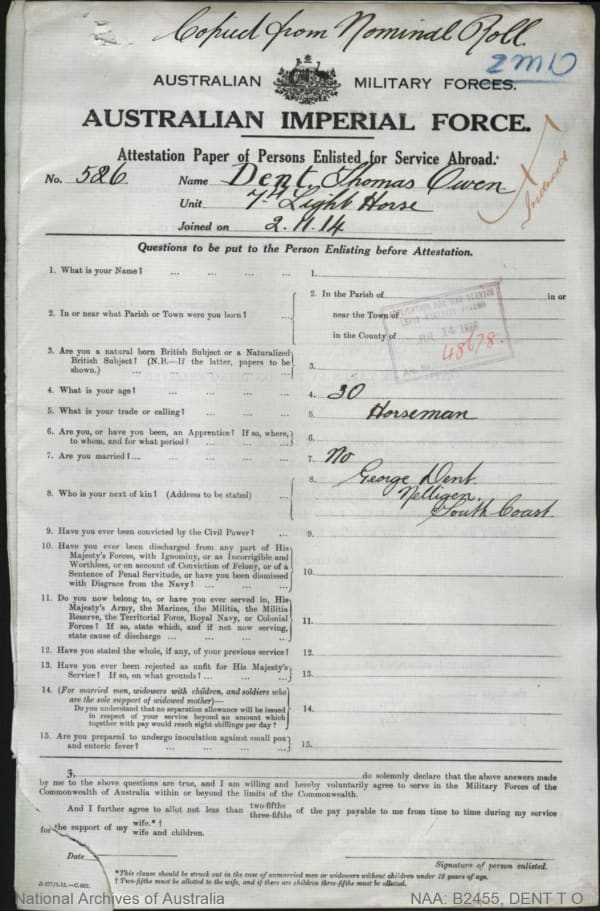 Copied from Nominal Roll.
2 MD
AUSTRALIAN MILITARY FORCES.
AUSTRALIAN IMPERIAL FORCE.
Attestation Paper of Persons Enlisted for Service Abroad.
No. 526. Name Dent, Thomas Owen
Unit 7th Light Horse
Joined on 2.11.14
Indexed
Questions to be put to the Person Enlisting before Attestation.
1. What is your Name? ... ... ... ... 1.
2. In or near what Parish or Town were you born? ... 2. In the Parish of in or
near the Town of
in the County of
48678.
3. Are you a natural born British Subject or a Naturalized
British Subject? (N.B.—If the latter, papers to be
shown.) ... ... ... ... ... 3.
4. What is your age? ... ... ... ... 4. 30
5. What is your trade or calling? ... ... ... 5. Horseman
6. Are you, or have you been, an Apprentice? If so, where,
to whom, and for what period? ... ... ... 6.
7. Are you married?... ... ... ... ... 7. No
8. Who is your next of kin? (Address to be stated) ... 8. George Dent.
Nelligen.
South Coast.
9. Have you ever been convicted by the Civil Power? ... 9.
10. Have you ever been discharged from any part of His
Majesty's Forces, with Ignominy, or as Incorrigible and
Worthless, or on account of Conviction of Felony, or of a
Sentence of Penal Servitude, or have you been dismissed
with Disgrace from the Navy? ... ... ... 10.
11. Do you now belong to, or have you ever served in, His
Majesty's Army, the Marines, the Militia, the Militia
Reserve, the Territorial Force, Royal Navy, or Colonial
Forces? If so, state which, and if not now serving,
state cause of discharge ... ... ... ... 11.
12. Have you stated the whole, if any, of your previous service? 12.
13. Have you ever been rejected as unfit for His Majesty's
Service? If so, on what grounds? ... ... ... 13.
14. (For married men, widowers with children, and soldiers who
are the sole support of widowed mother)—
Do you understand that no separation allowance will be issued
in respect of your service beyond an amount which
together with pay would reach eight shillings per day? 14.
15. Are you prepared to undergo inoculation against small pox
and enteric fever? ... ... ... ... 15.
I, do solemnly declare that the above answers made
by me to the above questions are true, and I am willing and hereby voluntarily agree to serve in the Military Forces of the
Commonwealth of Australia within or beyond the limits of the Commonwealth.
And I further agree to allot not less than two-fifths three-fifths of the pay payable to me from time to time during my service
for the support of my wife.*† wife and children.
Date
Signature of person enlisted.
*This clause should be struck out in the case of unmarried men or widowers without children under 18 years of age.
† Two-fifths must be allotted to the wife, and if there are children three-fifths must be allotted.
National Archives of Australia NAA: B2455, DENT T O